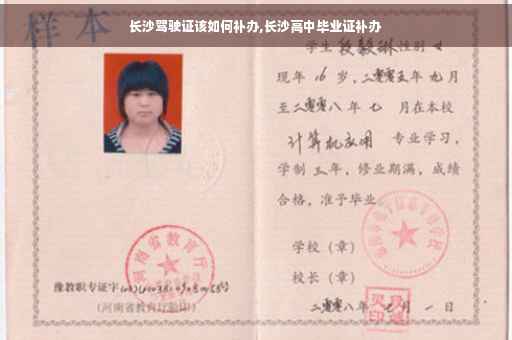 长沙驾驶证该如何补办,长沙高中毕业证补办
样本
学生段毅琳性别女
现年16岁，二零零五年九月
至二零零八年七月在本校
计算机应用 专业学习，
学制三年，修业期满，成绩
合格，准予毕业
学校（章）
校长（章）
二零零八年七月一日
河南省教育厅
豫教职专证字
（河南省教育厅验印）